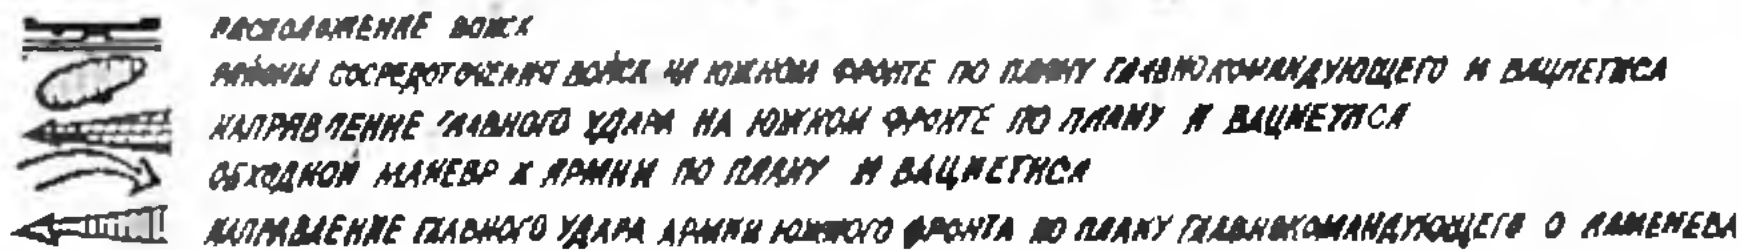 РАСПОЛОЖЕНИЕ ВОЙСК
РАЙОНЫ СОСРЕДОТОЧЕНИЯ ВОЙСК НА ЮЖНОМ ФРОНТЕ ПО ПЛАНУ ГЛАВНОКОМАНДУЮЩЕГО И ВАЦИЕТИСА
НАПРАВЛЕНИЕ ГЛАВНОГО УДАРА НА ЮЖНОМ ФРОНТЕ ПО ПЛАНУ И ВАЦИЕТИСА
ОБХОДНОЙ МАНЕВР X АРМИИ ПО ПЛАНУ И ВАЦИЕТИСА
НАПРАВЛЕНИЕ ГЛАВНОГО УДАРА АРМИИ ЮЖНОГО ФРОНТА ПО ПЛАНУ ГЛАВНОКОМАНДУЮЩЕГО С КАМЕНЕВА